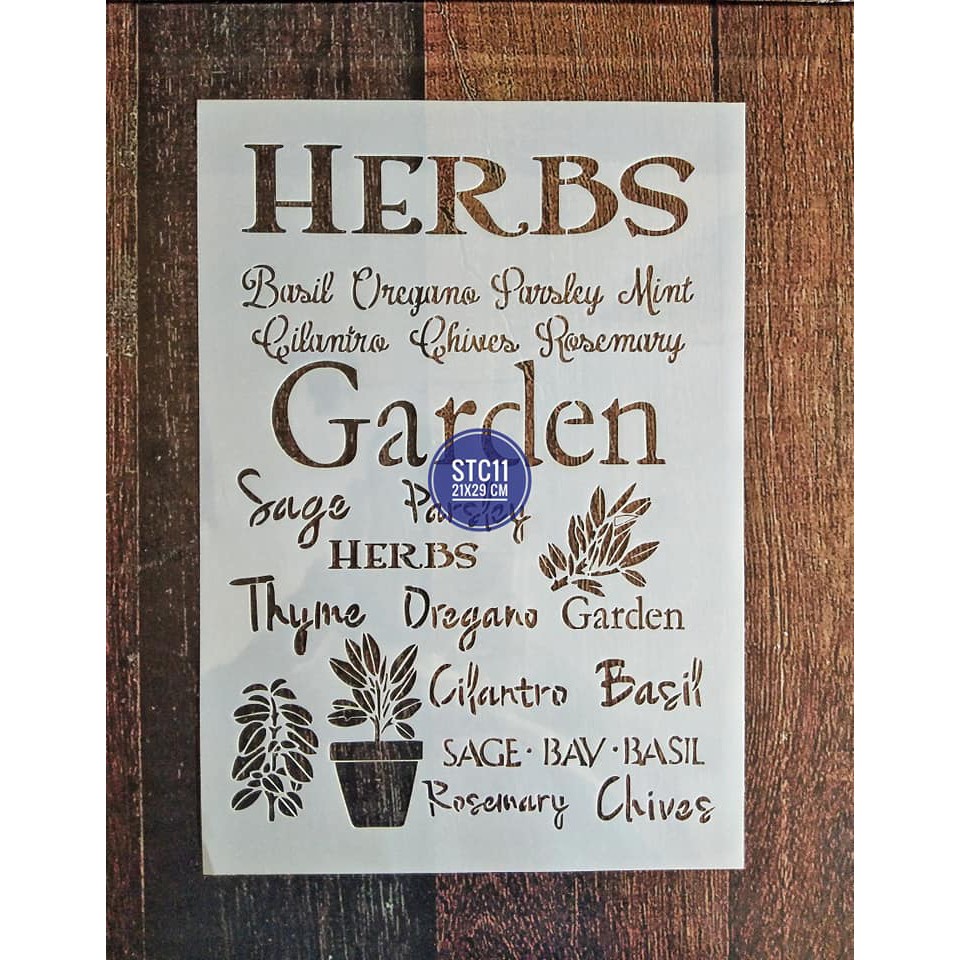 HERBS
Basil Oregano Parsley Mint
Cilantro Chives Rosemary
Garden
STC11
21X29 CM
Sage Parsley
HERBS
Thyme Oregano Garden
Cilantro Basil
SAGE · BAY · BASIL
Rosemary Chives